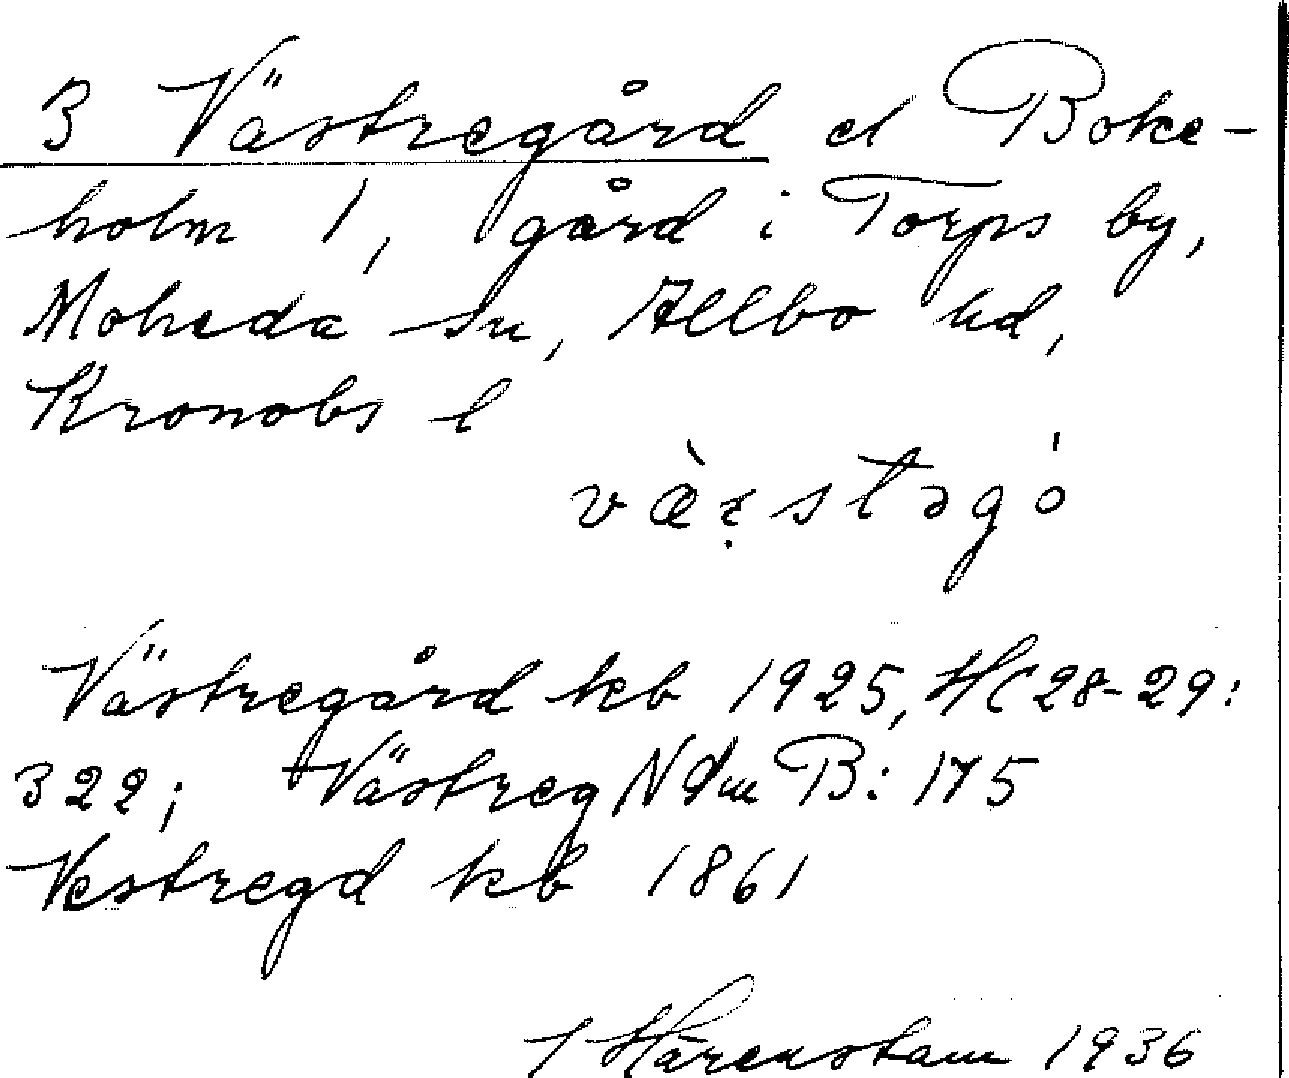 3 Västregård el Boke-
holm 1, gård i Torps by,
Moheda sn, Allbo hd,
Kronobs l
Västregård kb 1925, HC 28-29:
322; Västreg N Dm B: 175
Vestregd kb 1861
Härenstam 1936